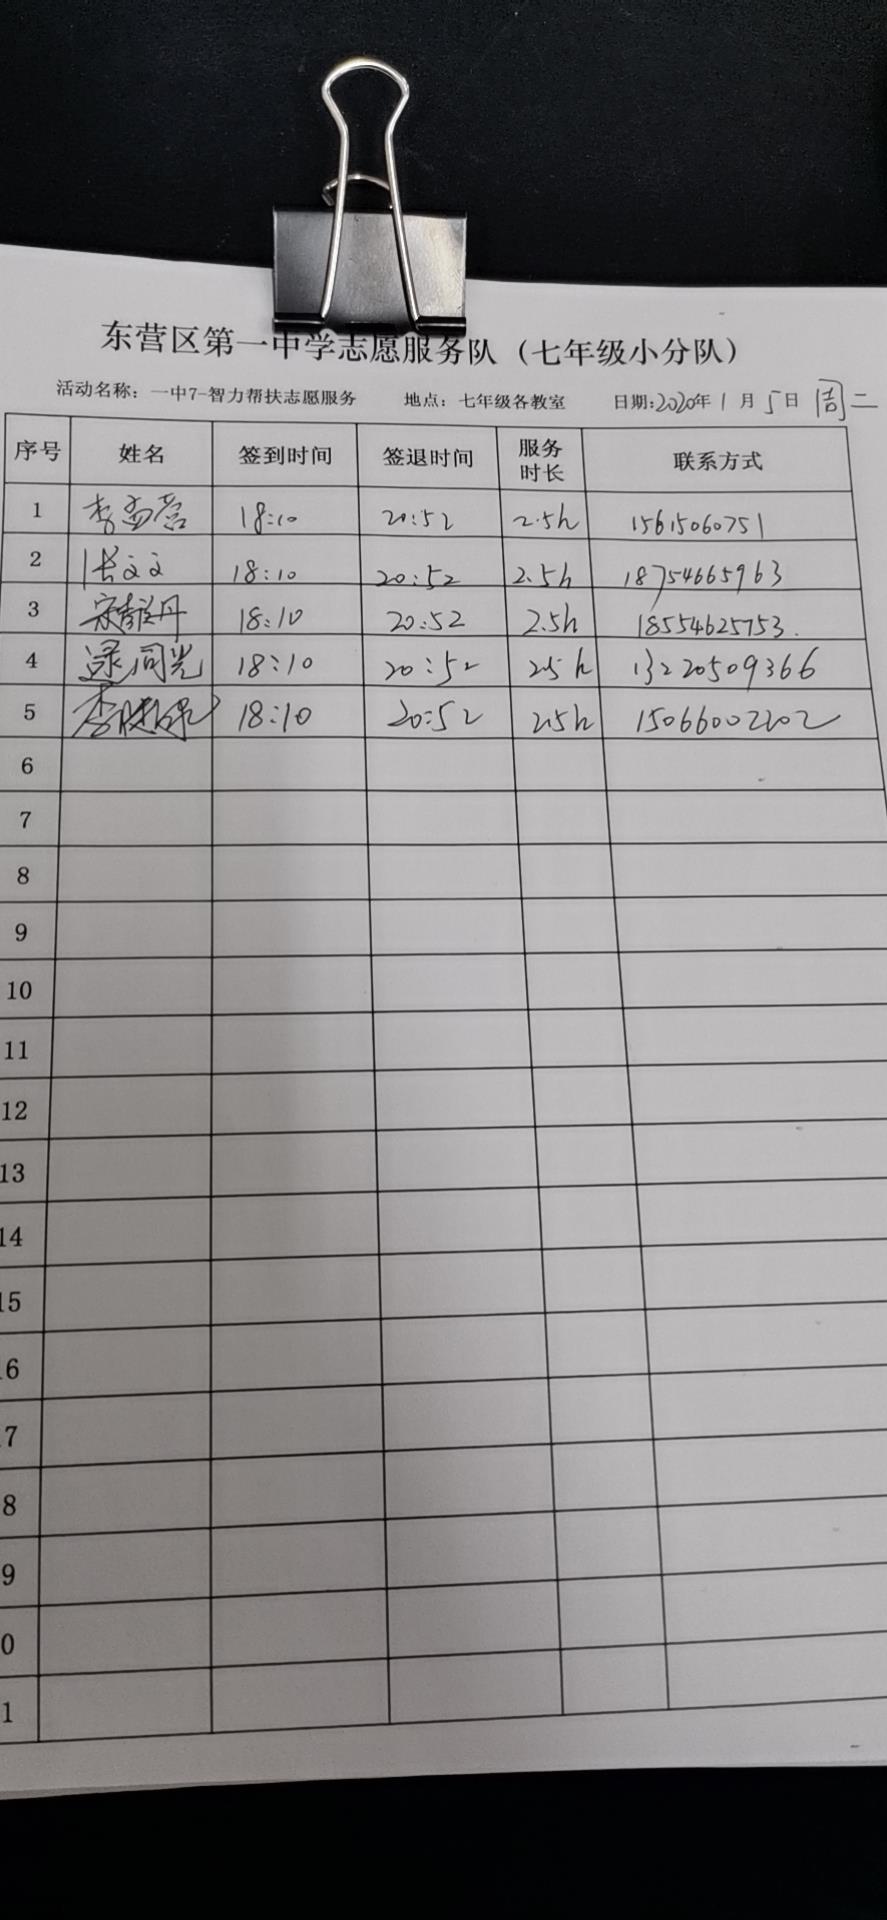 东营区第一中学志愿服务队（七年级小分队）
活动名称：一中7-智力帮扶志愿服务 地点：七年级各教室 日期:2020年1月5日 周二
序号 姓名 签到时间 签退时间 服务时长 联系方式
1 李孟营 18:10 20:52 2.5h 15615060751
2 张文文 18:10 20:52 2.5h 18754665963
3 宋静丹 18:10 20:52 2.5h 18554625753.
4 逯同光 18:10 20:52 2.5h 13220509366
5 李 18:10 20:52 2.5h 15066002202
6
7
8
9
10
11
12
13
14
15
16
7
8
9
0
1